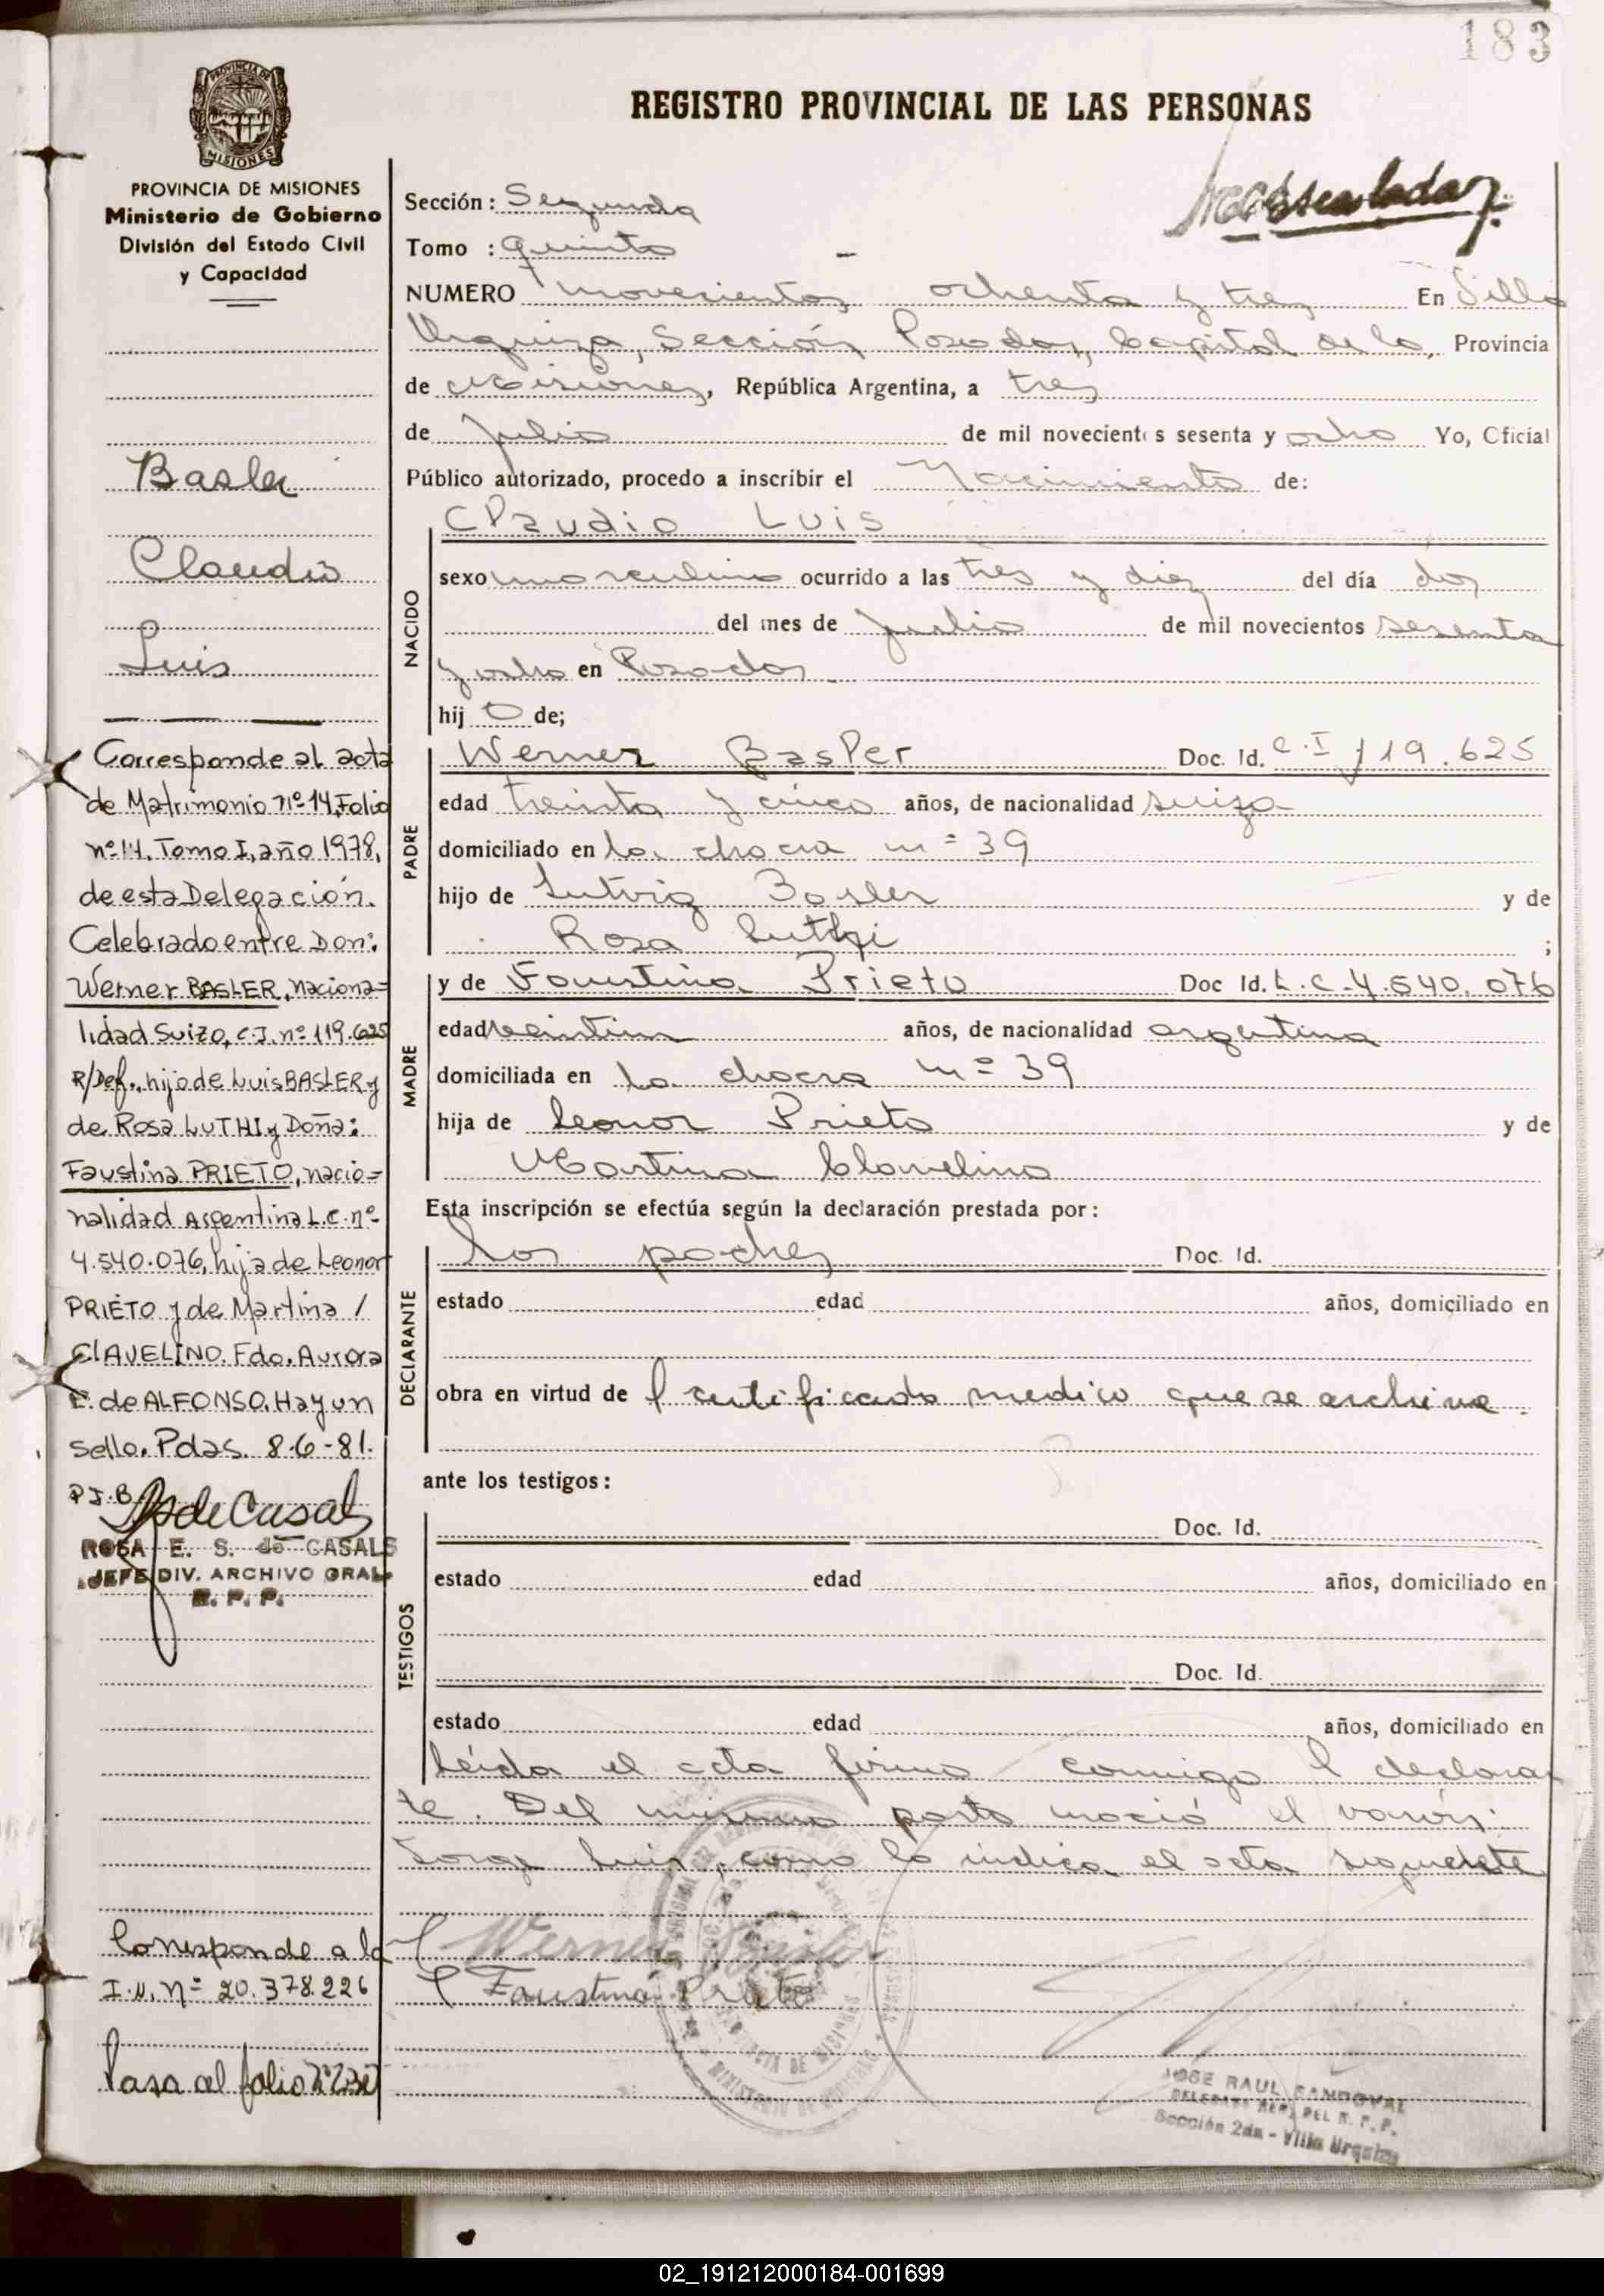 183
REGISTRO PROVINCIAL DE LAS PERSONAS
PROVINCIA DE MISIONES
MISIONES
PROVINCIA DE MISIONES
Ministerio de Gobierno
División del Estado Civil
y Capacidad
Sección: Segunda
Tomo : quinto
NUMERO novecientos ochenta y tres En Villa
Urquiza, Sección Posadas, Capital de la, Provincia
de Misiones, República Argentina, a tres
de julio de mil novecientos sesenta y ocho Yo, Oficial
Público autorizado, procedo a inscribir el Nacimiento de:
NACIDO
Claudio Luis
sexo masculino ocurrido a las tres y diez del día dos
del mes de julio de mil novecientos sesenta
y ocho en Posadas
hij o de;
PADRE
Werner Basler Doc. Id. C.I 119.625
edad treinta y cinco años, de nacionalidad suiza
domiciliado en la chacra nº 39
hijo de Lutvig Basler y de
Rosa Luthi ;
MADRE
y de Faustina Prieto Doc Id. L.C.4.540.076
edad veintiun años, de nacionalidad argentina
domiciliada en la chacra nº 39
hija de Leonor Prieto y de
Martina Clavelino
Esta inscripción se efectúa según la declaración prestada por:
DECLARANTE
los padres Doc. Id.
estado edad años, domiciliado en
obra en virtud de l certificado medico que se archiva.
ante los testigos:
TESTIGOS
Doc. Id.
estado edad años, domiciliado en
Doc. Id.
estado edad años, domiciliado en
Leída el acta firma conmigo l declaran
te. Del mismo parto nació el varón:
Jorge Luis, como lo indica el acta siguiente
Werner Basler
Faustina Prieto
JOSE RAUL SANDOVAL
DELEGADO DEL R. P. P.
Sección 2da - Villa Urquiza
Basler
Claudio
Luis
Corresponde al acta
de Matrimonio nº 14, Folio
nº 14. Tomo I, año 1978,
de esta Delegación.
Celebrado entre Don:
Werner BASLER, naciona=
lidad Suizo, C.I. nº 119.625
R/Def., hijo de Luis BASLER y
de Rosa LUTHI y Doña:
Faustina PRIETO, nacio=
nalidad Argentina L.C. nº
4.540.076, hija de Leonor
PRIETO y de Martina /
CLAVELINO. Fdo. Aurora
E. de ALFONSO. Hay un
sello. Pdas. 8-6-81.
P.J.B.
ROSA E. S. de CASALS
JEFE DIV. ARCHIVO GRAL.
R. P. P.
Corresponde a la
I.N. Nº 20.378.226
Pasa al folio
02_191212000184-001699